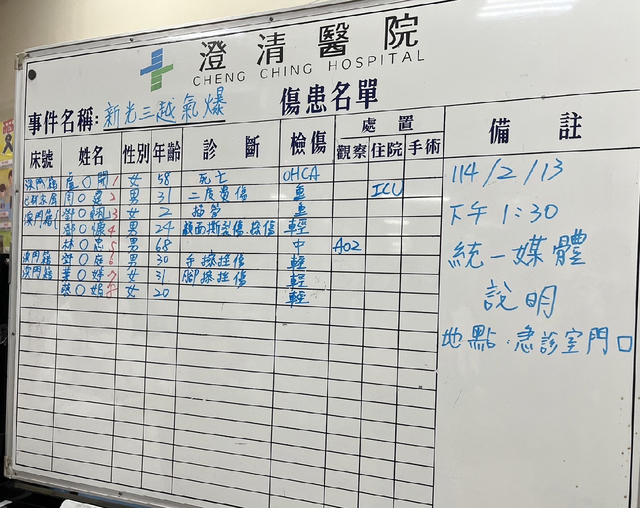 澄清醫院
CHENG CHING HOSPITAL
事件名稱: 新光三越氣爆 傷患名單
床號 姓名 性別 年齡 診斷 檢傷 處置 備註
觀察 住院 手術
澳門籍 盧〇開 1 女 58 死亡 OHCA
周〇 2 男 31 二度燙傷 重 ICU
澳門籍 鄧〇 3 女 2 插管 重
鄧〇懷 4 男 24 顏面撕裂傷 輕
林〇忠 5 男 68 中 A02
澳門籍 〇 6 男 30 手擦挫傷 輕
澳門籍 〇婷 7 女 31 腳擦挫傷 輕
蔡〇 女 20 輕
114/2/13
下午1:30
統一媒體
說明
地點:急診室門口